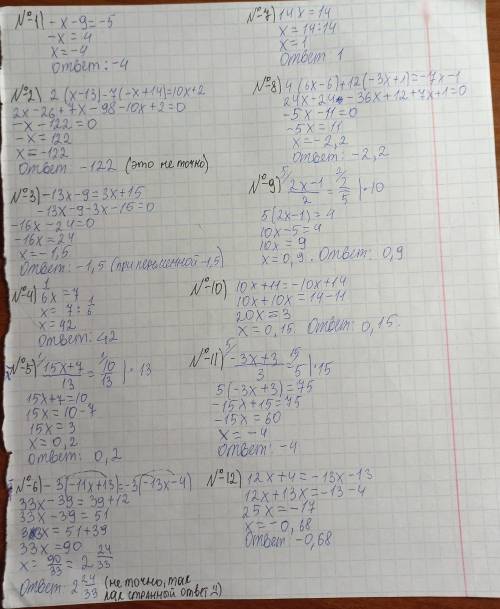 №-1) -x-9=-5
-x=4
x=-4
Ответ: -4
№2) 2(x-13)-7(-x+14)=10x+2
2x-26+7x-98-10x+2=0
-x-122=0
-x=122
x=-122
Ответ: -122 (это не точно)
№3) -13x-9=3x+15
-13x-9-3x-15=0
-16x-24=0
-16x=24
x=-1,5
Ответ: -1,5 (при переменной -1,5)
№-4) 1/6x=7
x=7:1/6
x=42
Ответ: 42
№-5) 15x+7/13=10/13 |·13
15x+7=10
15x=10-7
15x=3
x=0,2
Ответ: 0,2
№-6) -3(-11x+13)=-3(-13x-4)
33x-39=39+12
33x-39=51
33x=51+39
33x=90
x=90/33=2 24/33
Ответ: 2 24/33 (не точно, так
как странный ответ :))
№-7) 14x=14
x=14:14
x=1
Ответ: 1
№-8) 4(6x-6)+12(-3x+1)=-7x-1
24x-24-36x+12+7x+1=0
-5x-11=0
-5x=11
x=-2,2
Ответ: -2,2
№-9) 2x-1/2=2/5 |·10
5(2x-1)=4
10x-5=4
10x=9
x=0,9. Ответ: 0,9
№-10) 10x+11=-10x+14
10x+10x=14-11
20x=3
x=0,15. Ответ: 0,15.
№-11) -3x+3/3=15/5 |·15
5(-3x+3)=75
-15x+15=75
-15x=60
x=-4
Ответ: -4
№-12) 12x+4=-13x-13
12x+13x=-13-4
25x=-17
x=-0,68
Ответ: -0,68